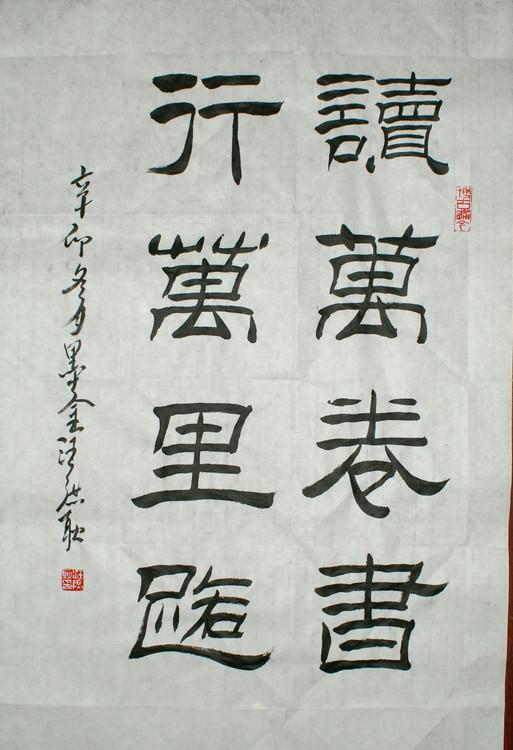 讀萬卷書
行萬里路
辛卯冬月墨金汪